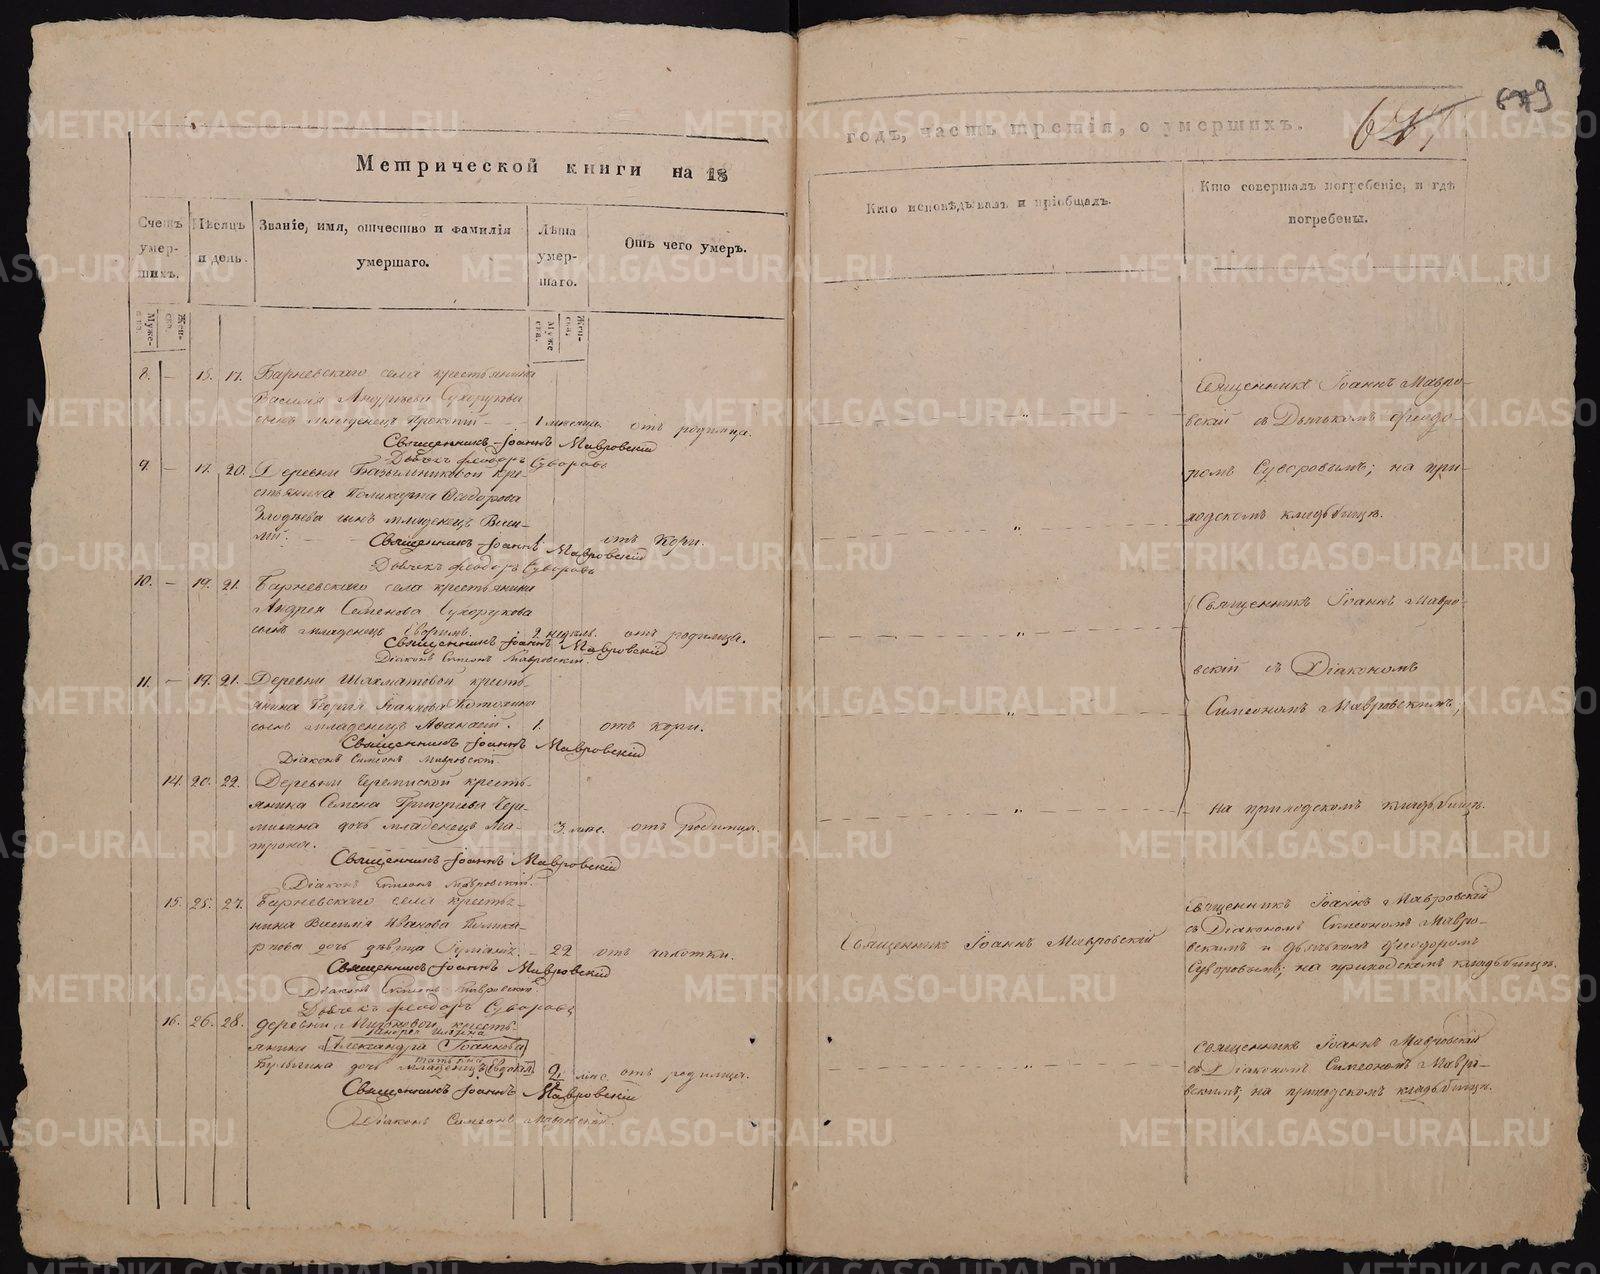 Метрической книги на 18
Счетъ умер-шихъ.
Мѣсяцъ и день.
Званіе, имя, отчество и фамилія умершаго.
Лѣта умер-шаго.
Отъ чего умеръ.
Муже-ска.
Жен-ска.
Муже ска.
Жен-ска.
8. – 15. 17. Барневскаго села крестьянина
Василія Андріева Сухорукова
сынъ младенецъ Прокопій – 1 мѣсяца. отъ родимца.
Священникъ Іоаннъ Мавровскій
Дьячекъ Феодоръ Суворовъ
9. – 17. 20. Деревни
стьянина Поликарпа Феодорова
сынъ младенецъ
1. отъ кори.
Священникъ Іоаннъ Мавровскій
Дьячекъ Феодоръ Суворовъ
10. – 19. 21. Барневскаго села крестьянина
Андрея Семенова Сухорукова
сынъ младенецъ 2 недѣль. отъ родимца.
Священникъ Іоаннъ Мавровскій
Діаконъ Симеонъ Мавровскій.
11. – 19. 21. Деревни Шахматовой кресть-
янина Георгія Іоаннова
сынъ младенецъ Аѳанасій. 1. отъ кори.
Священникъ Іоаннъ Мавровскій
Діаконъ Симеонъ Мавровскій.
14. 20. 22. Деревни Черемиской кресть-
янина Семена Григорьева Чере-
мисина дочь младенецъ Ма-
трона. 3. мѣс. отъ родимца.
Священникъ Іоаннъ Мавровскій
Діаконъ Симеонъ Мавровскій.
15. 25. 27. Барневскаго села крестья-
нина Василія Иванова Полика-
рпова дочь дѣвица – 22 отъ чахотки.
Священникъ Іоаннъ Мавровскій
Діаконъ Симеонъ Мавровскій.
Дьячекъ Феодоръ Суворовъ
16. 26. 28. деревни кресть-
Андрея Ильина
янина Александра Іоаннова
Татьяна
дочь младенецъ Евдокія 2 мѣс. отъ родимца.
Священникъ Іоаннъ Мавровскій
Діаконъ Симеонъ Мавровскій.
годъ, часть третія, о умершихъ.
679
Кто исповѣдывалъ и пріобщалъ.
Кто совершалъ погребеніе, и гдѣ погребены.
Священникъ Іоаннъ Мавро-
вскій съ Дьячкомъ Феодо-
ромъ Суворовымъ; на при-
ходскомъ кладбищѣ.
Священникъ Іоаннъ Мавро-
вскій съ Діакономъ
Симеономъ Мавровскимъ;
на приходскомъ кладбищѣ.
Священникъ Іоаннъ Мавровскій
Священникъ Іоаннъ Мавровскій
съ Діакономъ Симеономъ Мавро-
вскимъ и дьячкомъ Феодоромъ
Суворовымъ; на приходскомъ кладбищѣ.
Священникъ Іоаннъ Мавровскій
съ Діакономъ Симеономъ Мавро-
вскимъ; на приходскомъ кладбищѣ.
METRIKI.GASO-URAL.RU